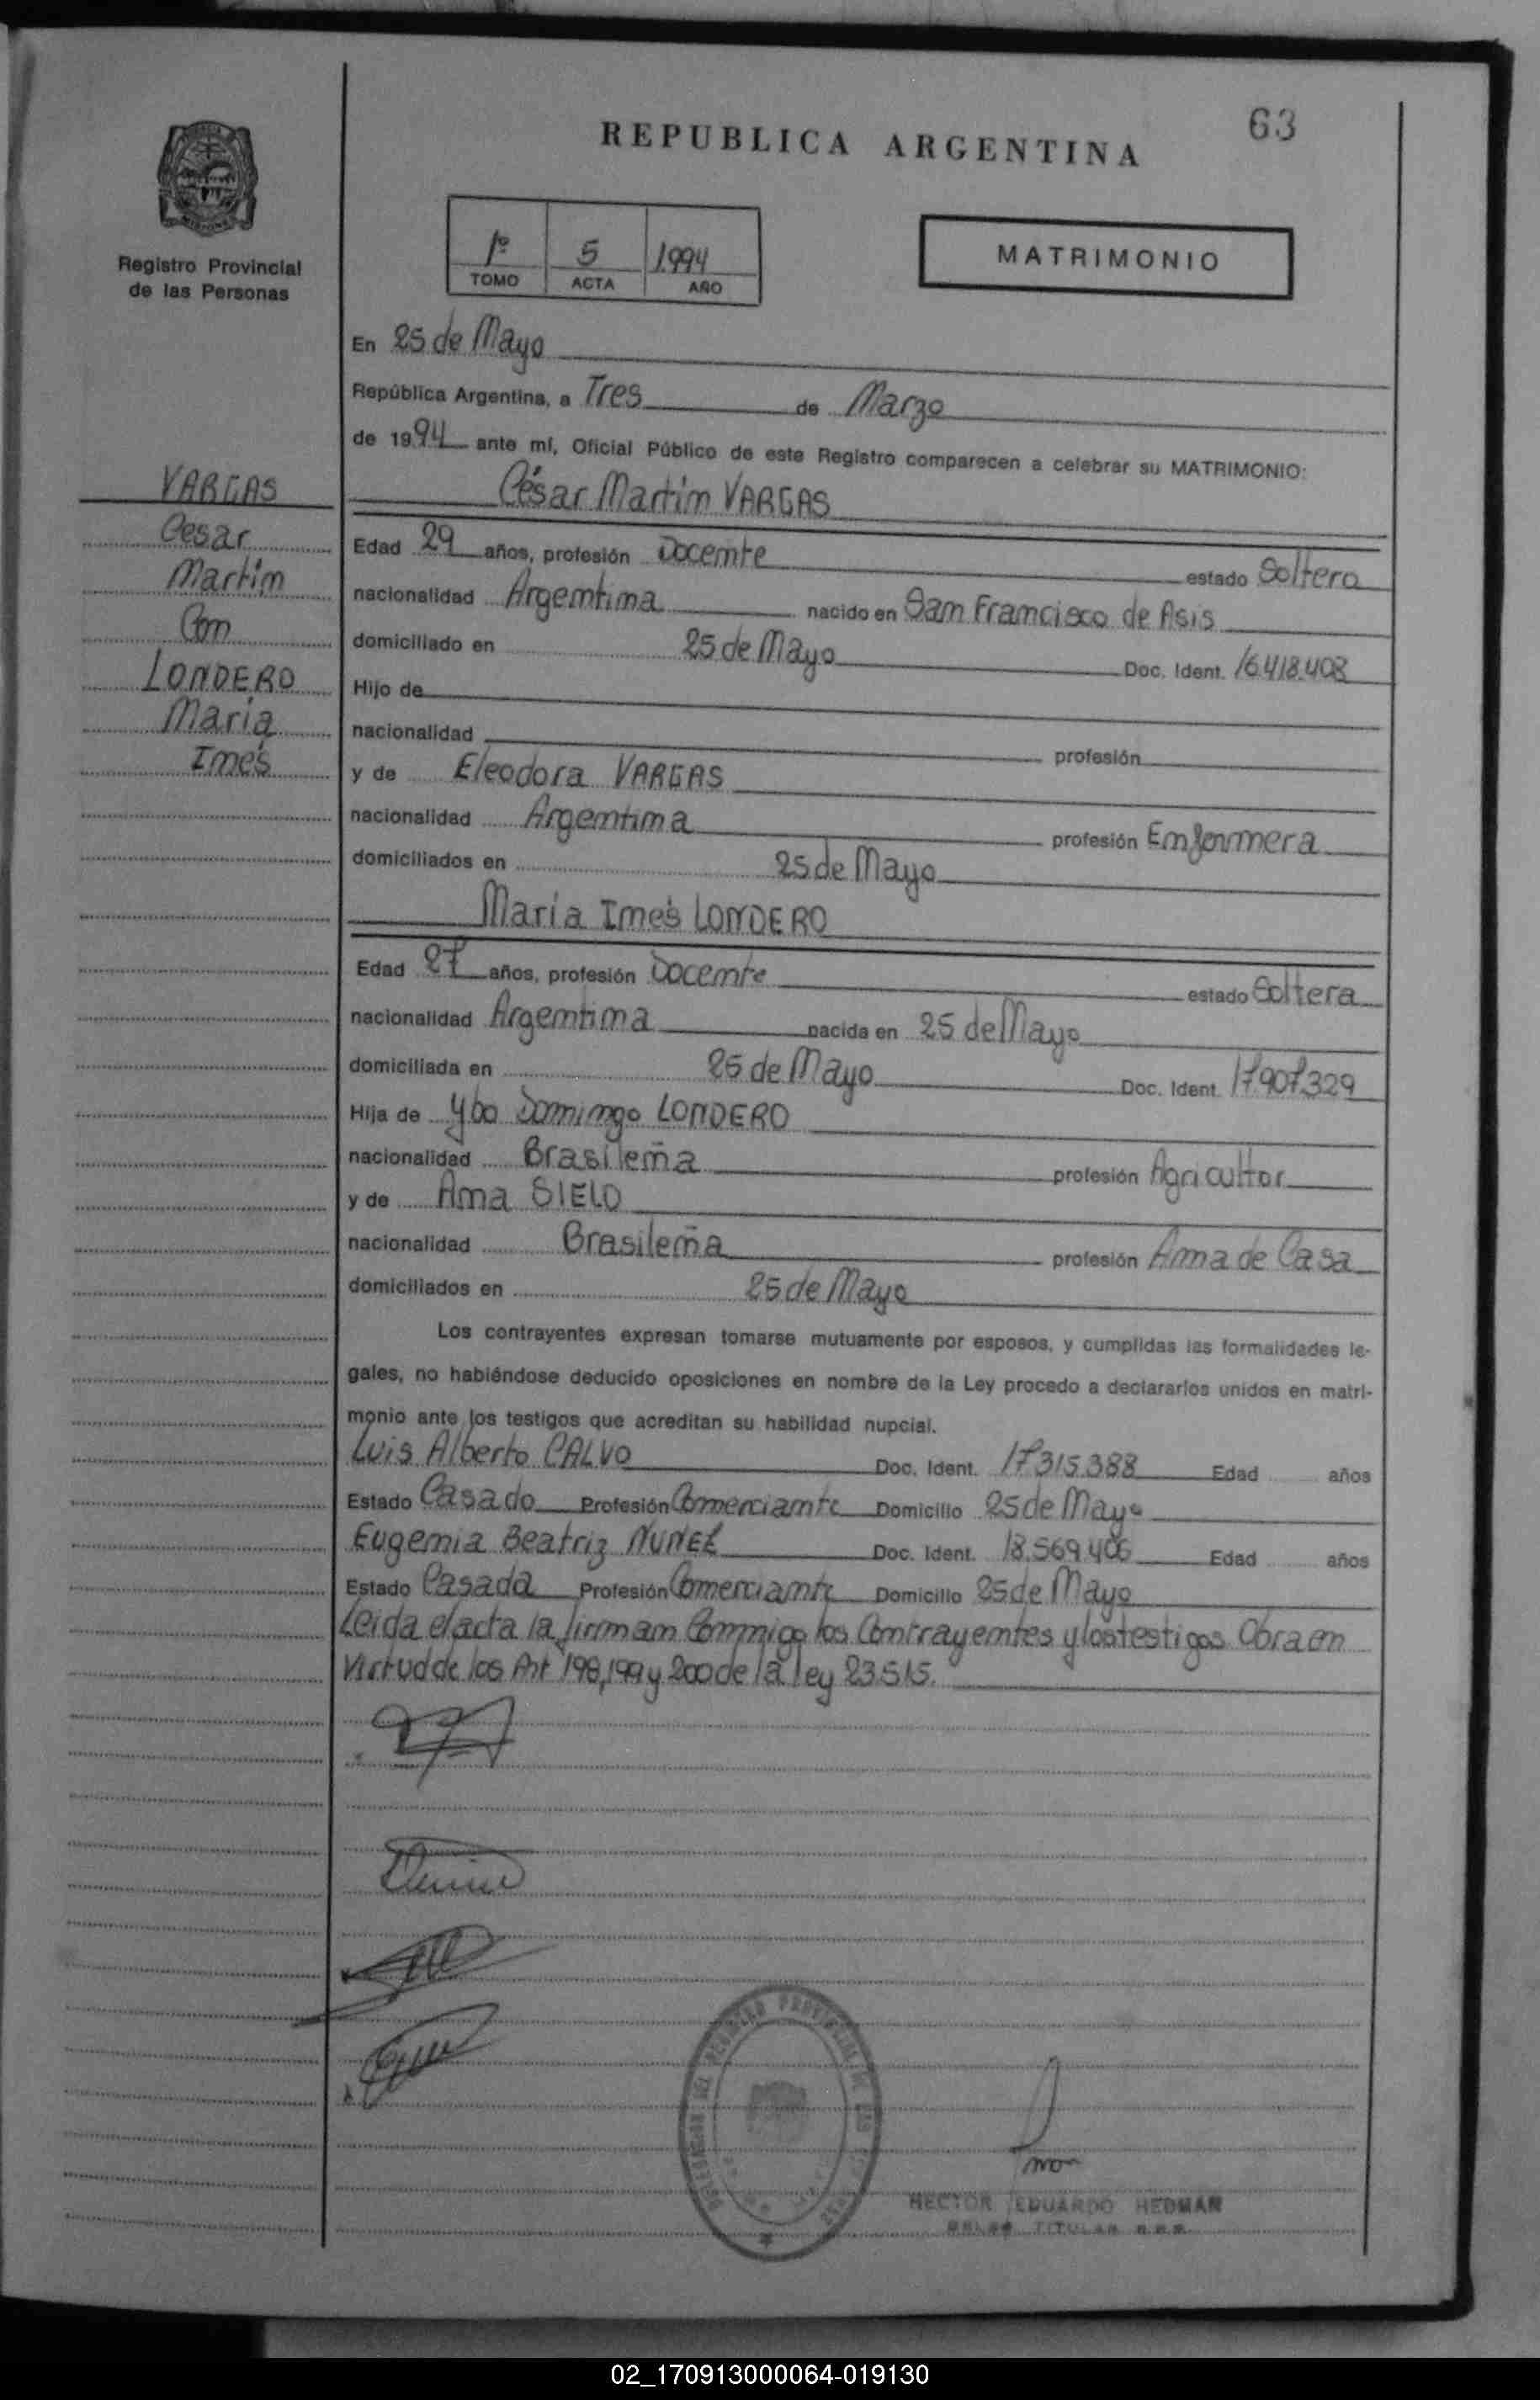 63
REPUBLICA ARGENTINA
Registro Provincial
de las Personas
1º 5 1994
TOMO ACTA AÑO
MATRIMONIO
En 25 de Mayo
República Argentina, a Tres de Marzo
de 1994 ante mí, Oficial Público de este Registro comparecen a celebrar su MATRIMONIO:
VARGAS
Cesar
Martín
Con
LONDERO
María
Inés
César Martín VARGAS
Edad 29 años, profesión Docente estado Soltero
nacionalidad Argentina nacido en San Francisco de Asis
domiciliado en 25 de Mayo Doc. Ident. 16.418.408
Hijo de
nacionalidad profesión
y de Eleodora VARGAS
nacionalidad Argentina profesión Enfermera
domiciliados en 25 de Mayo
María Inés LONDERO
Edad 27 años, profesión Docente estado Soltera
nacionalidad Argentina nacida en 25 de Mayo
domiciliada en 25 de Mayo Doc. Ident. 17.907.329
Hija de Ybo Domingo LONDERO
nacionalidad Brasileña profesión Agricultor
y de Ana SIELO
nacionalidad Brasileña profesión Ama de Casa
domiciliados en 25 de Mayo
Los contrayentes expresan tomarse mutuamente por esposos, y cumplidas las formalidades le-
gales, no habiéndose deducido oposiciones en nombre de la Ley procedo a declararlos unidos en matri-
monio ante los testigos que acreditan su habilidad nupcial.
Luis Alberto CALVO Doc. Ident. 17.315.388 Edad años
Estado Casado Profesión Comerciante Domicilio 25 de Mayo
Eugenia Beatriz NUÑEZ Doc. Ident. 18.569.406 Edad años
Estado Casada Profesión Comerciante Domicilio 25 de Mayo
Leida el acta la firman Conmigo los Contrayentes y los testigos Obra en
Virtud de los Art 198, 199 y 200 de la ley 23.515.
HECTOR EDUARDO HEDMAN
TITULAR
02_170913000064-019130